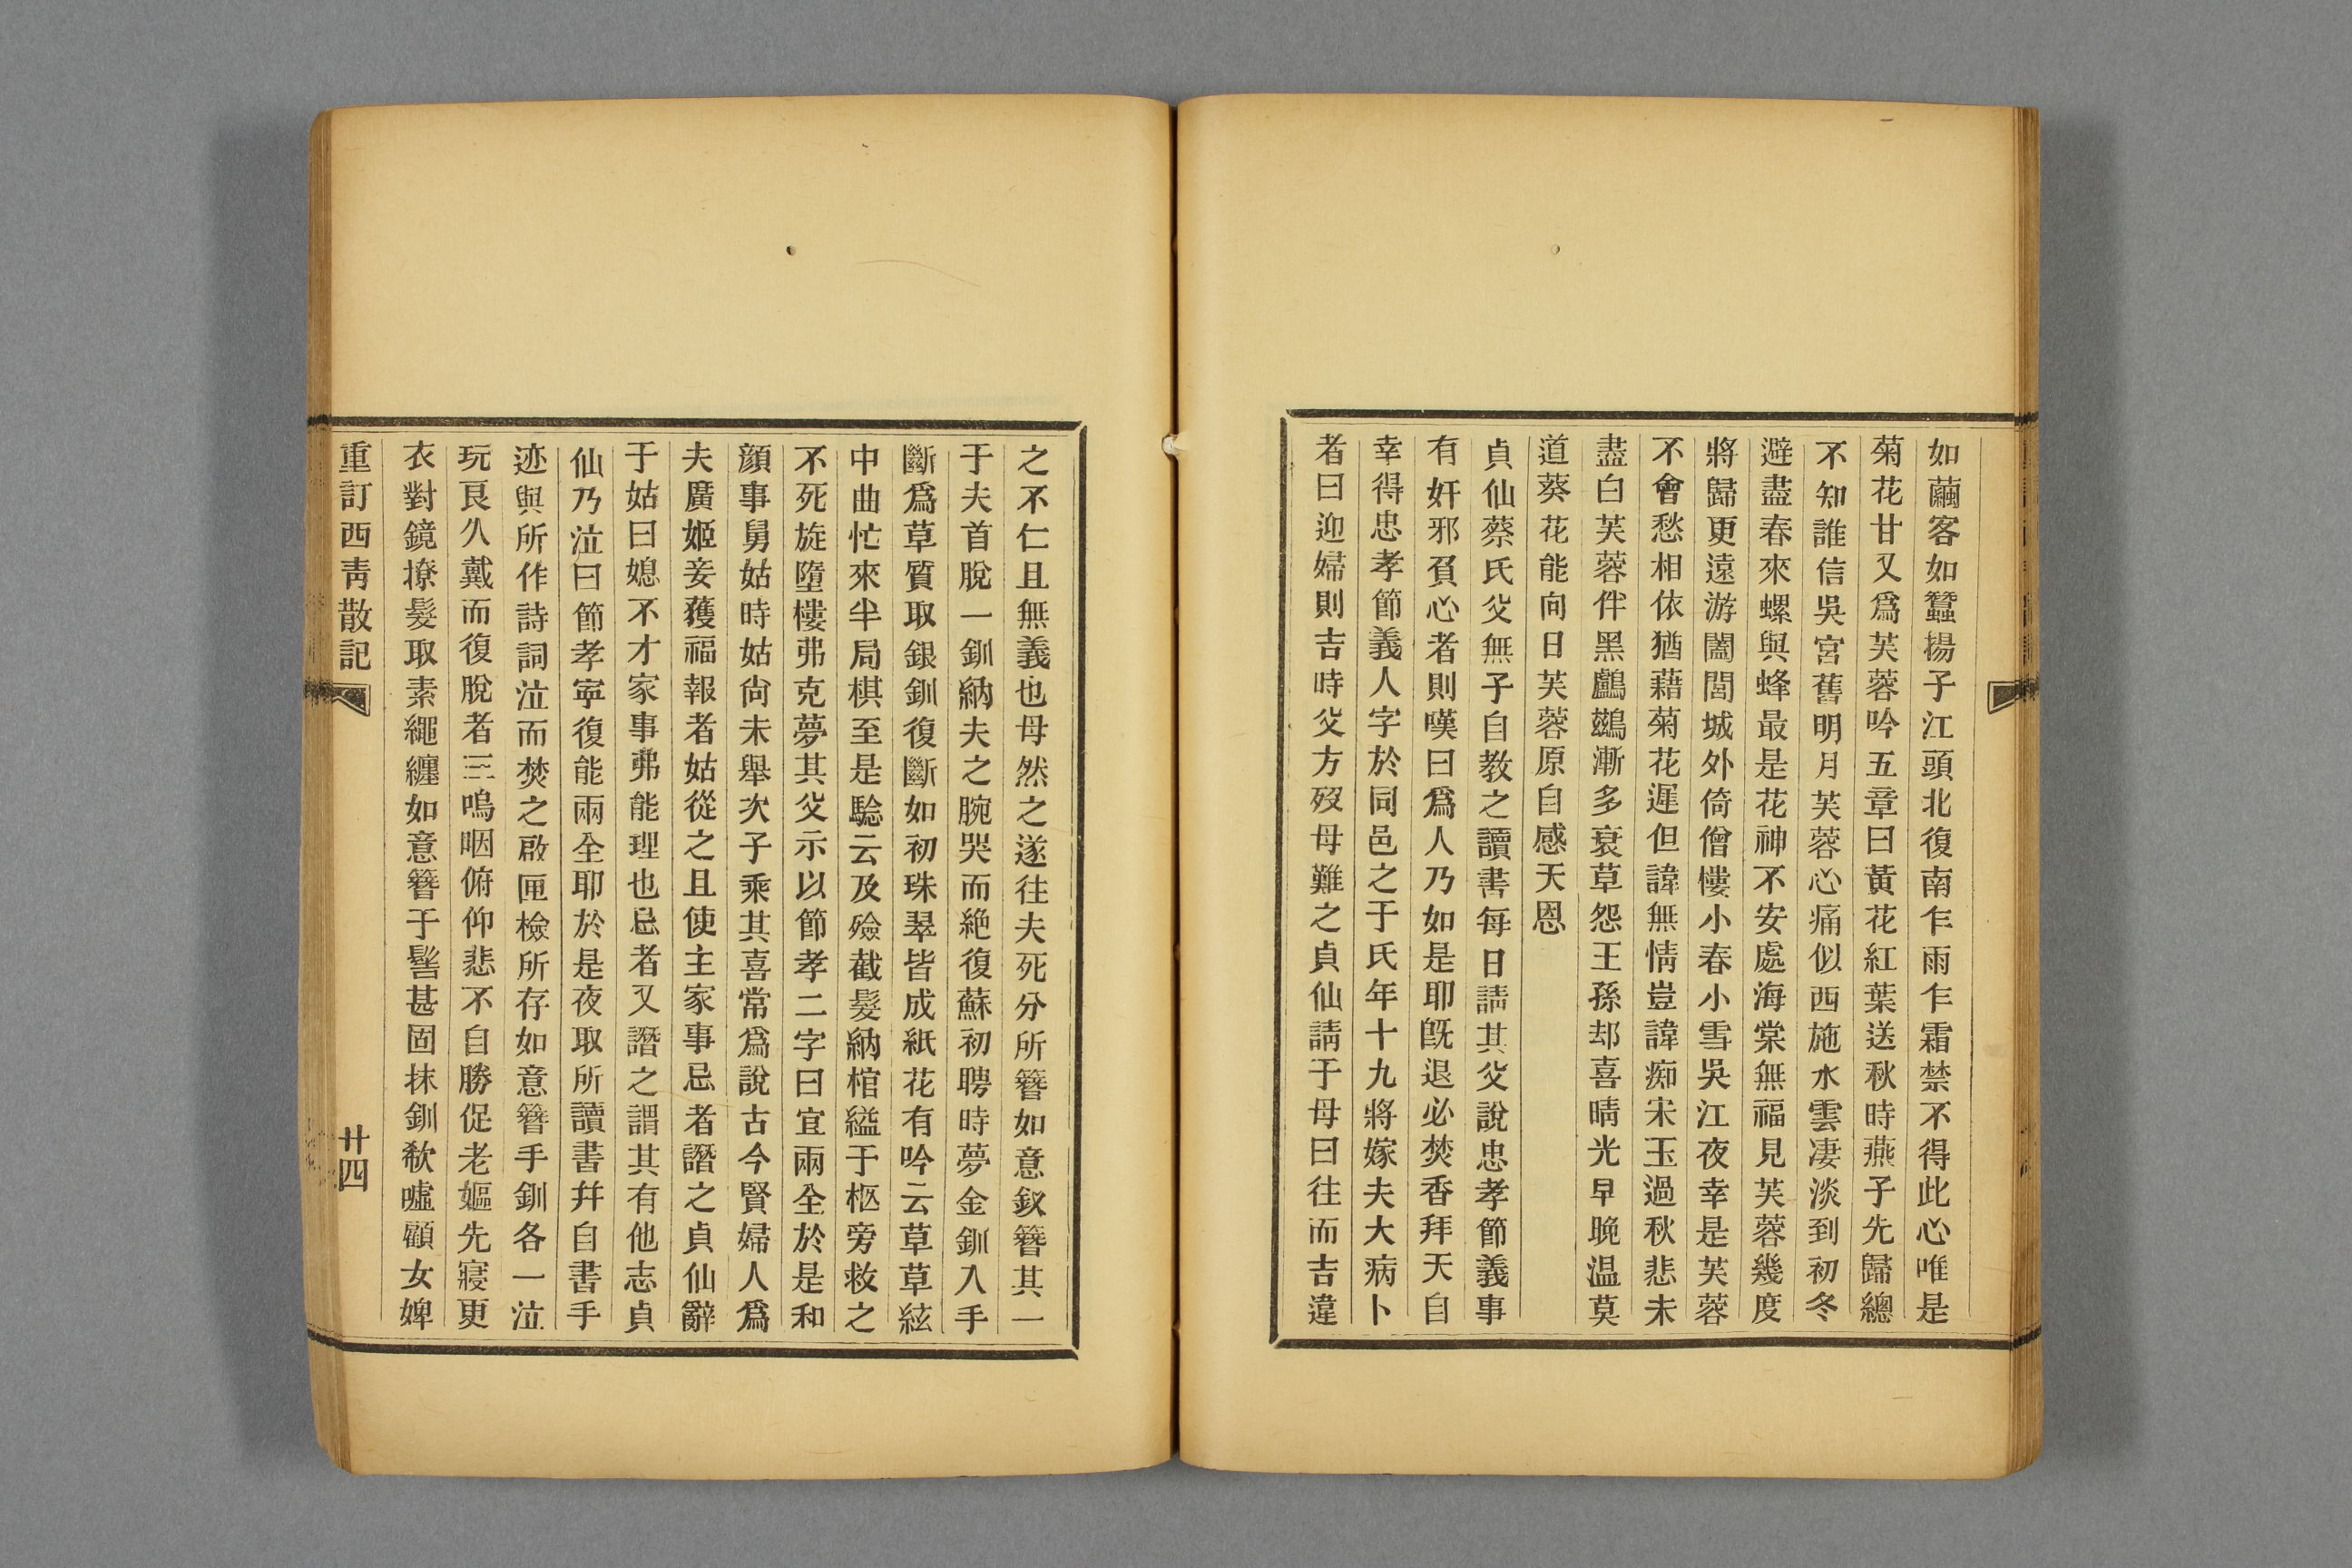 如繭客如蠶揚子江頭北復南乍雨乍霜禁不得此心唯是
菊花甘又爲芙蓉吟五章曰黃花紅葉送秋時燕子先歸總
不知誰信吳宮舊明月芙蓉心痛似西施水雲凄淡到初冬
避盡春來螺與蜂最是花神不安處海棠無福見芙蓉幾度
將歸更遠游闔閭城外倚僧樓小春小雪吳江夜幸是芙蓉
不會愁相依猶藉菊花遲但諱無情豈諱痴宋玉過秋悲未
盡白芙蓉伴黑鸕鷀漸多衰草怨王孫却喜晴光早晚温莫
道葵花能向日芙蓉原自感天恩
貞仙蔡氏父無子自教之讀書每日請其父說忠孝節義事
有奸邪負心者則嘆曰爲人乃如是耶旣退必焚香拜天自
幸得忠孝節義人字於同邑之于氏年十九將嫁夫大病卜
者曰迎婦則吉時父方歿母難之貞仙請于母曰往而吉違
之不仁且無義也母然之遂往夫死分所簪如意釵簪其一
于夫首脫一釧納夫之腕哭而絶復蘇初聘時夢金釧入手
斷爲草質取銀釧復斷如初珠翠皆成紙花有吟云草草絃
中曲忙來半局棋至是驗云及殮截髮納棺縊于柩旁救之
不死旋墮樓弗克夢其父示以節孝二字曰宜兩全於是和
顔事舅姑時姑尙未舉次子乘其喜常爲說古今賢婦人爲
夫廣姬妾獲福報者姑從之且使主家事忌者譖之貞仙辭
于姑曰媳不才家事弗能理也忌者又譖之謂其有他志貞
仙乃泣曰節孝寧復能兩全耶於是夜取所讀書幷自書手
迹與所作詩詞泣而焚之啟匣檢所存如意簪手釧各一泣
玩良久戴而復脫者三嗚咽俯仰悲不自勝促老嫗先寢更
衣對鏡撩髮取素繩纒如意簪于髻甚固抹釧欷噓顧女婢
重訂西靑散記
廿四